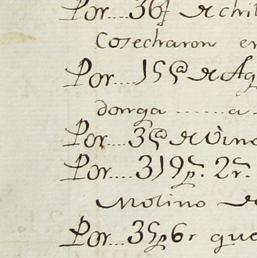 Por....36f de chi
Cosecharon en
Por....15@ de Ag
donga ...... a
Por....3@ de Vino
Por....319p.s 2r.s
Molino de
Por....35p6r que